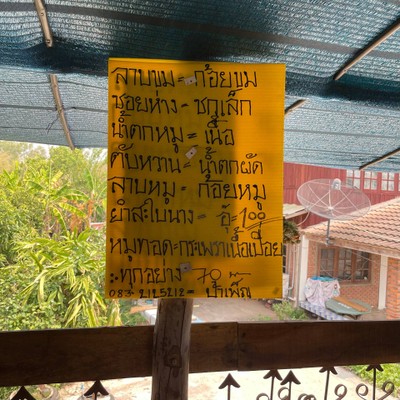 ลาบขม = ก้อยขม
ซอยห่าง - ซกเล็ก
น้ำตกหมู = เนื้อ
ตับหวาน = น้ำตกผัด
ลาบหมู = ก้อยหมู
ยำสะใบนาง = อุ๊ = 100
หมูทอด = กระเพราเนื้อเปื่อย
ทุกอย่าง 70
083-2125212 = ป้าเพ็ญ